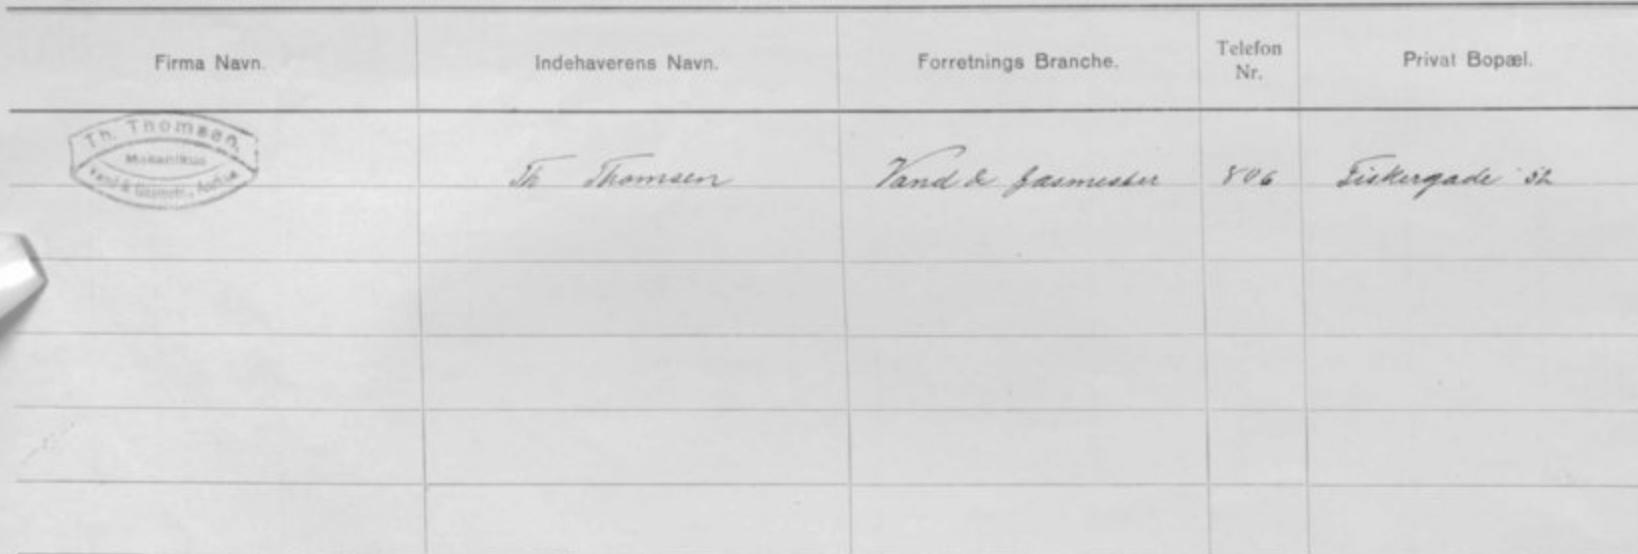 Firma Navn.
Indehaverens Navn.
Forretnings Branche.
Telefon
Nr.
Privat Bopæl.
Th. Thomsen.
Mekanikus
Vand & Gasmstr., Aarhus
Th Thomsen
Vand & Gasmester
806
Fiskergade 52